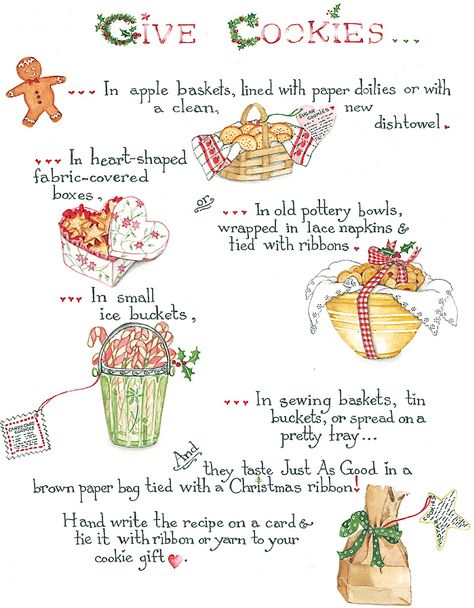 GIVE COOKIES...
In apple baskets, lined with paper doilies or with
a clean, new
dishtowel.
SUGAR
COOKIES
In heart-shaped
fabric-covered
boxes,
or
In old pottery bowls,
wrapped in lace napkins &
tied with ribbons.
In small
ice buckets,
CANDY CANE
COOKIES
In sewing baskets, tin
buckets, or spread on a
pretty tray...
And
they taste Just As Good in a
brown paper bag tied with a Christmas ribbon!
Hand write the recipe on a card &
tie it with ribbon or yarn to your
cookie gift.